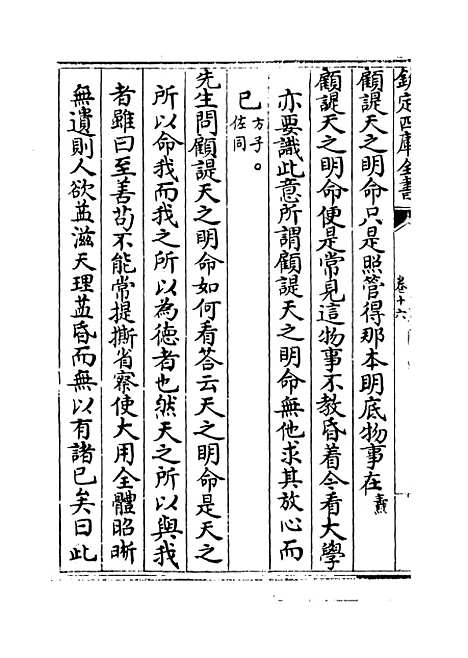 欽定四庫全書
卷十六
顧諟天之明命只是照管得那本明底物事在燾
顧諟天之明命便是常見這物事不教昏着今看大學
亦要識此意所謂顧諟天之明命無他求其放心而
已方子。佐同
先生問顧諟天之明命如何看答云天之明命是天之
所以命我而我之所以為德者也然天之所以與我
者雖曰至善苟不能常提撕省察使大用全體昭晣
無遺則人欲益滋天理益昏而無以有諸己矣曰此